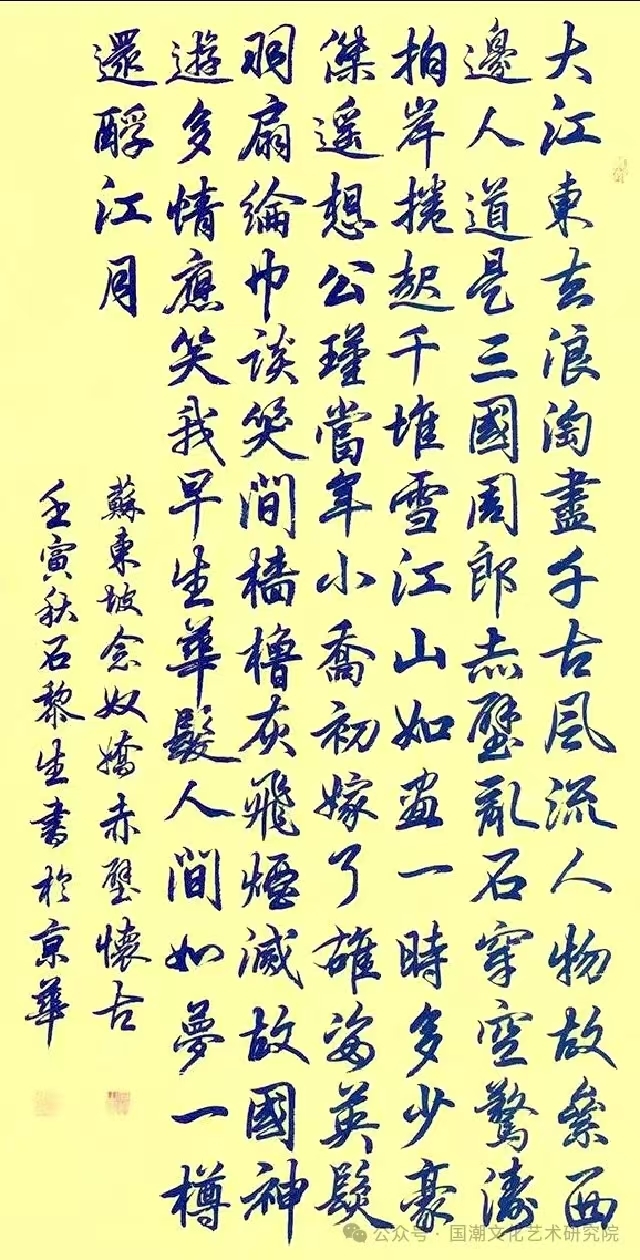 大江東去浪淘盡千古風流人物故壘西
邊人道是三國周郎赤壁亂石穿空驚濤
拍岸捲起千堆雪江山如畫一時多少豪
傑遥想公瑾當年小喬初嫁了雄姿英發
羽扇綸巾談笑間檣櫓灰飛煙滅故國神
遊多情應笑我早生華髮人間如夢一樽
還酹江月
蘇東坡念奴嬌赤壁懷古
壬寅秋石黎生書於京華
公众号·国潮文化艺术研究院